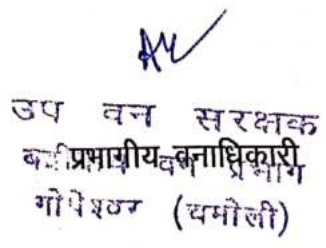 उप वन सरक्षक
प्रभागीय वनाधिकारी
वन प्रभाग
गोपेश्वर (चमोली)